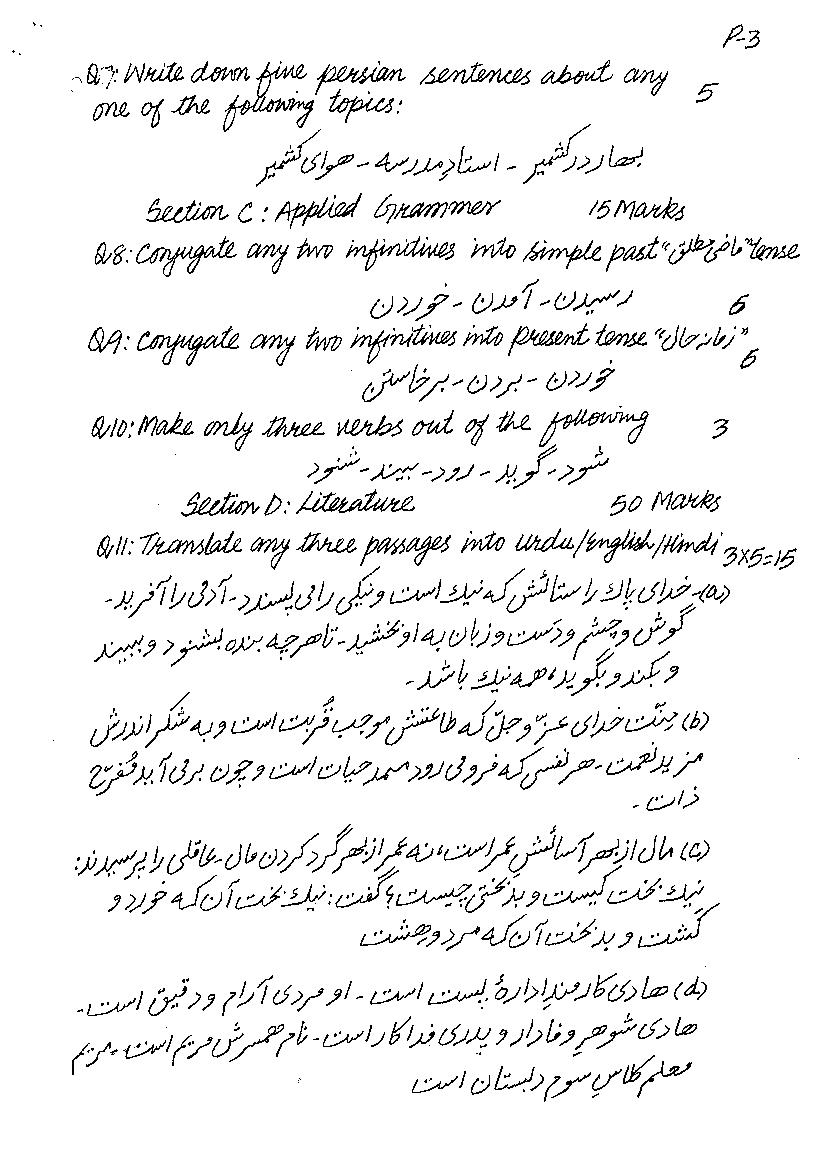 P-3
Q7: Write down five persian sentences about any 5
one of the following topics:
بهار در کشمیر - استادِ مدرسه - هوای کشمیر
Section C: Applied Grammer 15 Marks
Q8: Conjugate any two infinitives into simple past "ماضی مطلق" tense
رسیدن - آمدن - خوردن 6
Q9: Conjugate any two infinitives into present tense "زمانہ حال"
6
خوردن - بردن - برخاستن
Q10: Make only three verbs out of the following 3
شود - گوید - رود - بیند - شنود
Section D: Literature 50 Marks
Q11: Translate any three passages into urdu/English/Hindi 3x5=15
(a)- خدای پاك را ستائش که نیك است و نیکی را می پسندد - آدمی را آفرید -
گوش و چشم و دست و زبان به او بخشید - تا هر چه بنده بشنود و ببیند
و بکند و بگوید، همه نیك باشد -
(b) مِنّت خدای عزّ و جلّ که طاعتش موجب قُربت است و به شکر اندرش
مزید نعمت - هر نفسی که فرو می رود ممد حیات است و چون بر می آید مُفرّح
ذات -
(c) مال از بهر آسائشِ عمر است، نه عمر از بهر گرد کردن مال - عاقلی را پرسیدند:
نیك بخت کیست و بدبختی چیست؟ گفت: نیك بخت آن که خورد و
کِشت و بدبخت آن که مرد و هِشت
(d) هادی کارمندِ ادارهٔ پست است - او مردی آرام و دقیق است -
هادی شوهرِ وفادار و پدری فداکار است - نام همسرش مریم است - مریم
معلم کلاسِ سوم دبستان است